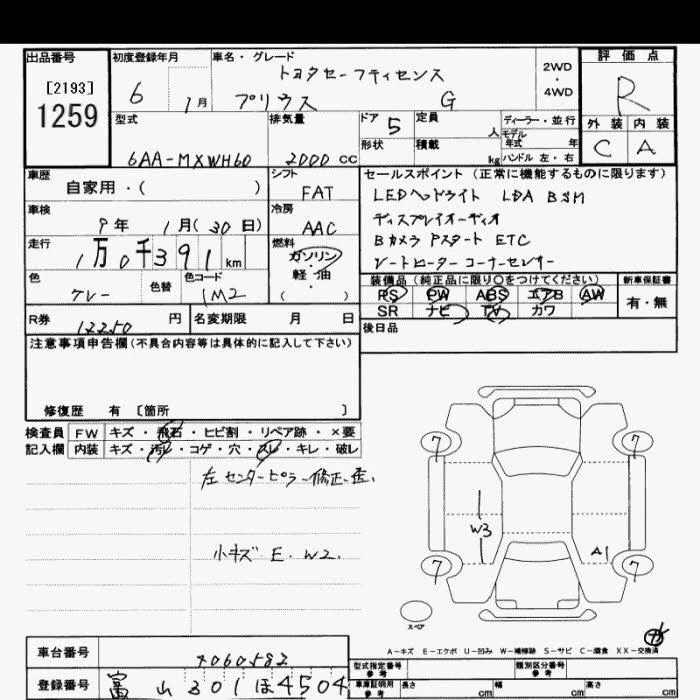 出品番号
[2193]
1259
初度登録年月
6 1月
車名・グレード
トヨタセーフティセンス
プリウス G
2WD
・
4WD
評価点
R
外装 内装
C A
型式
6AA-MXWH60
排気量
2000 cc
ドア 5
形状
定員 人
積載 kg
ディーラー・並行
モデル
年式 年
ハンドル 左・右
車歴
自家用・( )
シフト
FAT
車検
9年 1月(30日)
冷房
AAC
走行
1万0千391km
燃料
ガソリン
軽・油
( )
色
グレー
色替
色コード
1M2
セールスポイント(正常に機能するものに限ります)
LEDヘッドライト LDA BSM
ディスプレイオーディオ
Bカメラ Pスタート ETC
シートヒーター コーナーセンサー
装備品(純正品に限り○をつけてください)
PS PW ABS エアB AW
SR ナビ TV カワ
新車保証書
有・無
R券 12250 円
名変期限 月 日
後日品
注意事項申告欄(不具合内容等は具体的に記入して下さい)
修復歴 有 〔箇所 〕
検査員
記入欄
FW キズ・飛石・ヒビ割・リペア跡・×要
内装 キズ・汚レ・コゲ・穴・スレ・キレ・破レ
左センターピラー修正歪.
小キズ E. W2.
7 7
W3
A1
7 7
スペア
A-キズ E-エクボ U-凹み W-補修跡 S-サビ C-腐食 XX-交換済
車台番号
4060582
登録番号
富山 301 ほ 4504
型式指定番号
参考
類別区分番号
参考
車庫証明用
参考
長さ cm
幅 cm
高さ cm